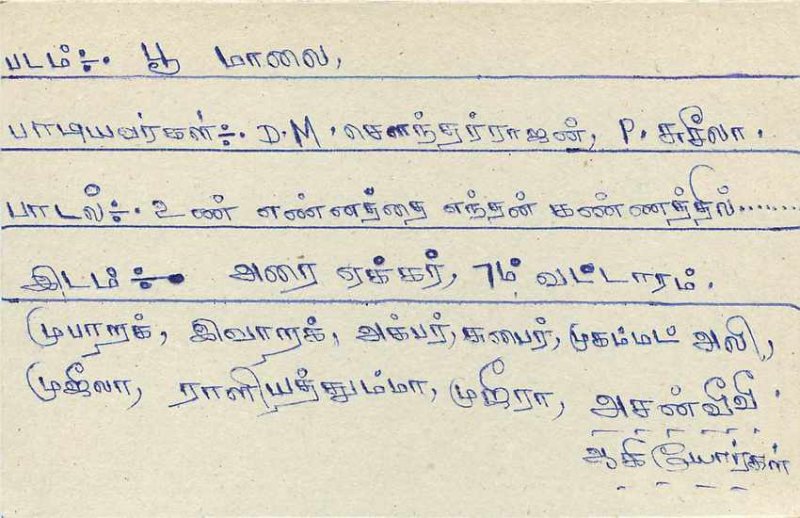 படம்÷. பூ மாலை,
பாடியவர்கள்÷. D.M. சௌந்தர்ராஜன், P. சுசீலா.
பாடல்÷. உண் எண்னத்தை எந்தன் கண்ணத்தில்........
இடம்÷. அரை ஏக்கர், 7ம் வட்டாரம்.
முபாறக், இவாறக், அக்பர், சுபைர், முகம்மட் அலி,
முஜீலா, ராளியத்தும்மா, முஜீரா, அசண்வீவி.
ஆகியோர்கள்